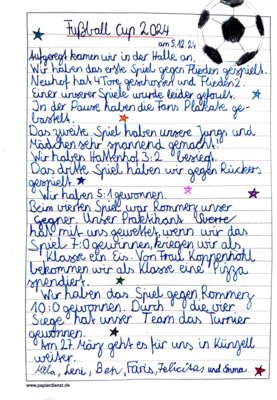 Fußball Cup 2024
am 5.12.24
Aufgeregt kamen wir in der Halle an.
Wir haben das erste Spiel gegen Flieden gespielt.
Neuhof hat 4 Tore geschossen und Flieden 2.
Einer unserer Spieler wurde leider gefoult.
In der Pause haben die Fans Plakate ge-
bastelt.
Das zweite Spiel haben unsere Jungs und
Mädchen sehr spannend gemacht.
Wir haben Hattenhof 3:2 besiegt.
Das dritte Spiel haben wir gegen Rückers
gespielt.
Wir haben 5:1 gewonnen.
Beim vierten Spiel war Rommerz unser
Gegner. Unser Praktikant
hat mit uns gewettet, wenn wir das
Spiel 7:0 gewinnen, kriegen wir als
Klasse ein Eis. Von Frau Kappenhohl
bekommen wir als Klasse eine Pizza
spendiert.
Wir haben das Spiel gegen Rommerz
10:0 gewonnen. Durch die vier
Siege hat unser Team das Turnier
gewonnen.
Am 27. März geht es für uns in Künzell
weiter.
Mila, Leni, Ben, Faris, Felicitas und Emma
www.papierdienst.de